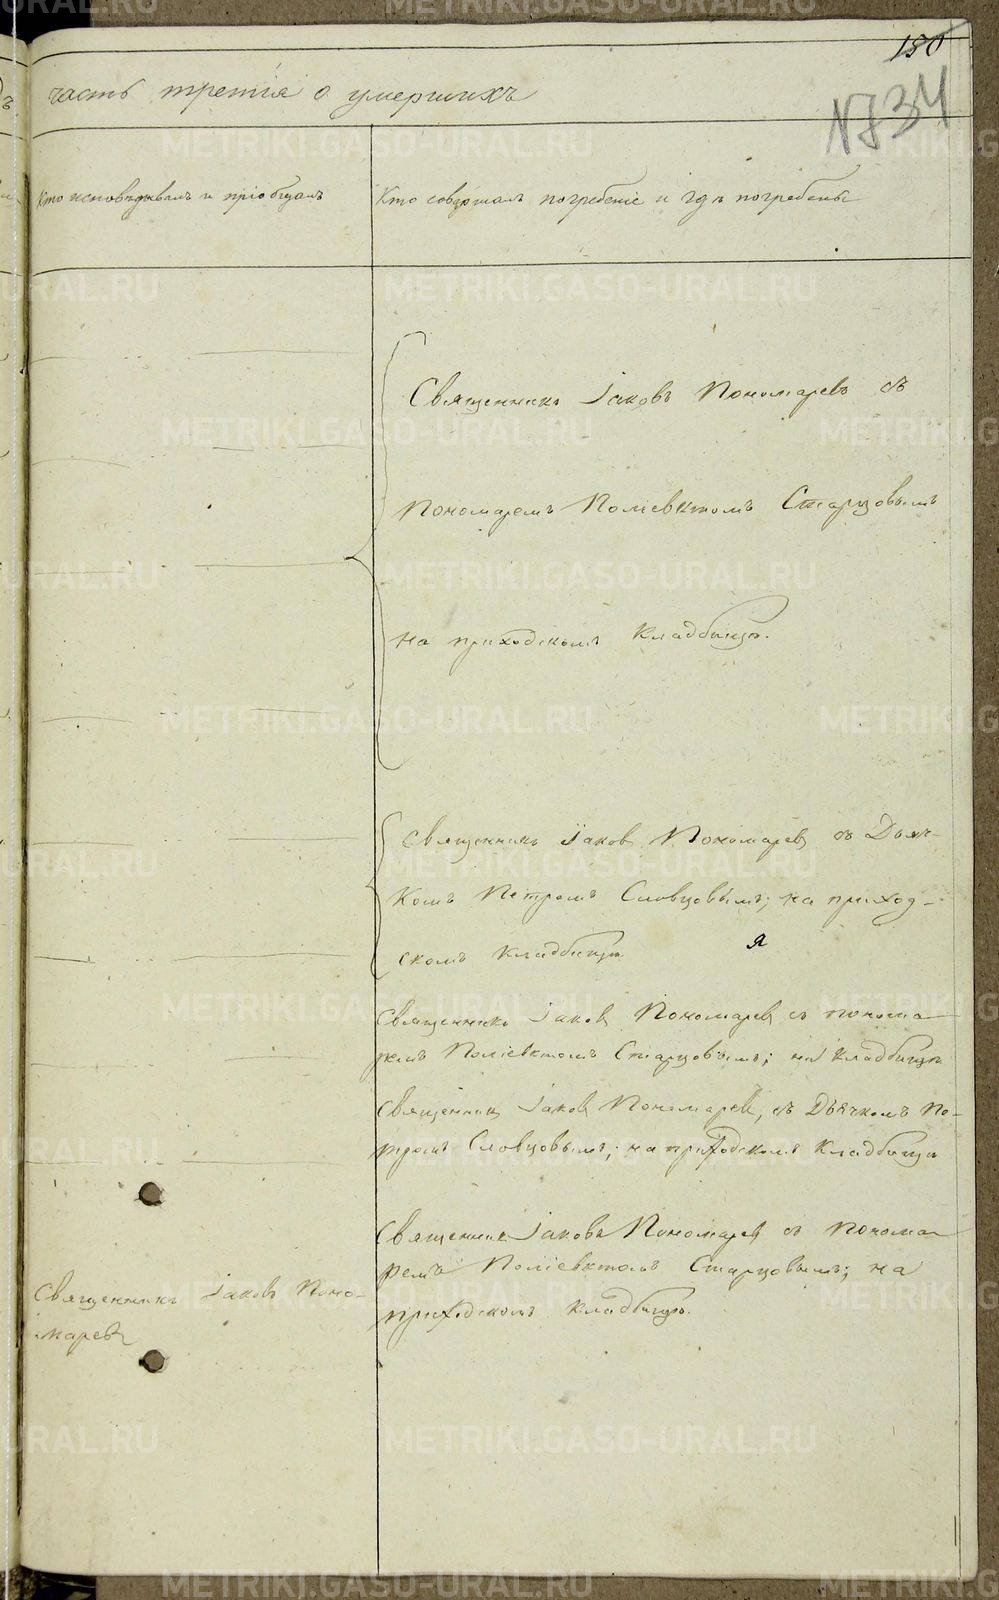 150
часть третія о умершихъ
N734
Кто исповѣдывалъ и пріобщалъ
Кто совершалъ погребеніе и гдѣ погребены
Священникъ Іаковъ Пономаревъ съ
Пономаремъ Поліевктомъ Старцовымъ
на приходскомъ кладбищѣ.
Священникъ Іаковъ Пономаревъ съ Дьяч-
комъ Петромъ Словцовымъ; на приход-
скомъ кладбищѣ
я
Священникъ Іаковъ Пономаревъ съ понома-
ремъ Поліевктомъ Старцовымъ; на кладбищѣ
Священникъ Іаковъ Пономаревъ, съ Дьячкомъ Пе-
тромъ Словцовымъ; на приходскомъ кладбищѣ
Священникъ Іаковъ Пономаревъ съ Понома-
ремъ Поліевктомъ Старцовымъ; на
приходскомъ кладбищѣ.
Священникъ Іаковъ Поно-
маревъ
METRIKI.GASO-URAL.RU